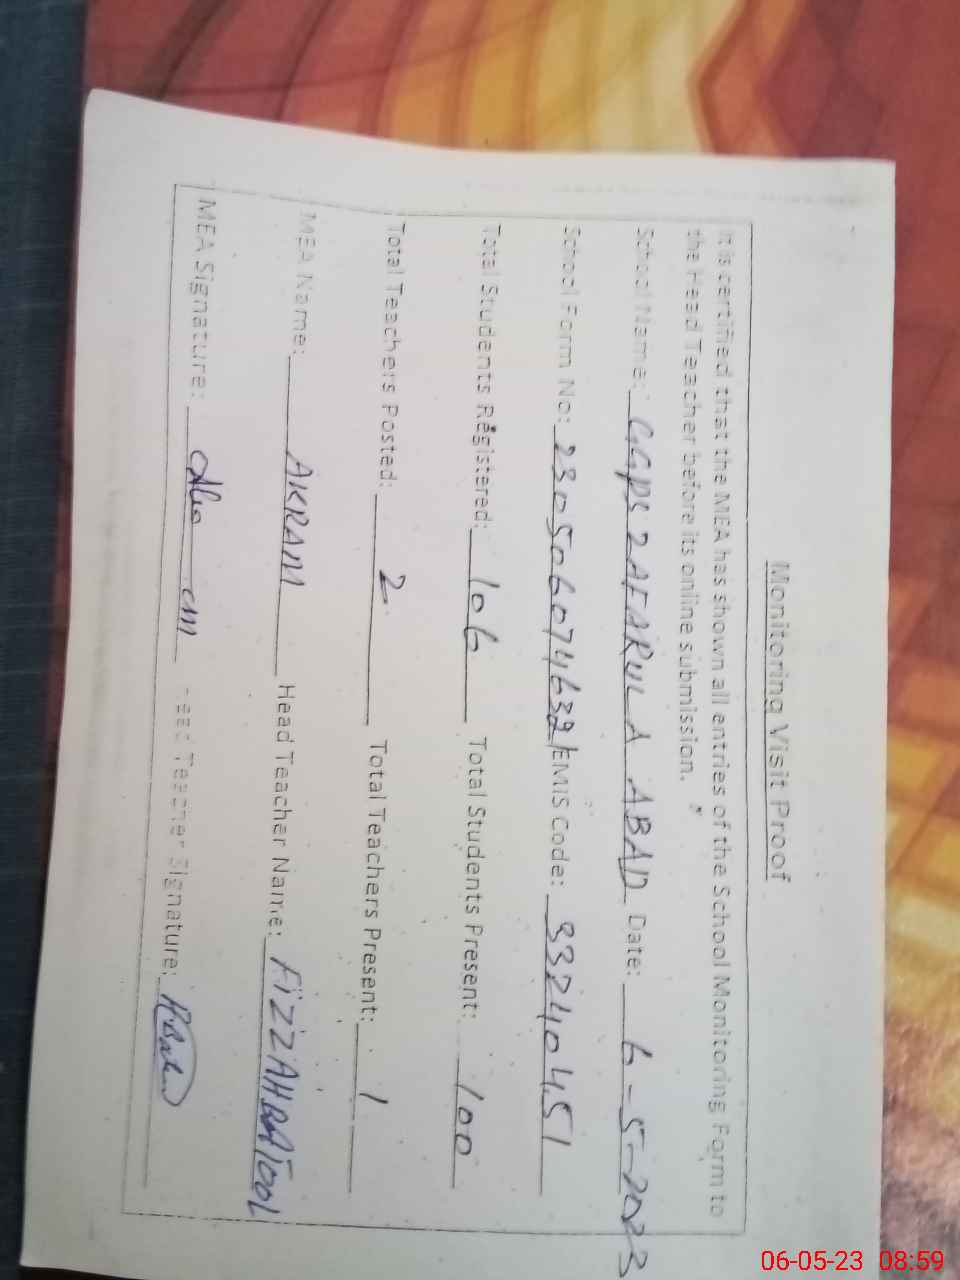 Monitoring Visit Proof
It is certified that the MEA has shown all entries of the School Monitoring Form to
the Head Teacher before its online submission.
School Name: GGPS ZAFARUL A ABAD Date: 6-5-2023
School Form No: 230506074632 EMIS Code: 33240451
Total Students Registered: 106 Total Students Present: 100
Total Teachers Posted: 2 Total Teachers Present: 1
MEA Name: AKRAM Head Teacher Name: FIZZAH BATOOL
MEA Signature: Head Teacher Signature:
06-05-23 08:59